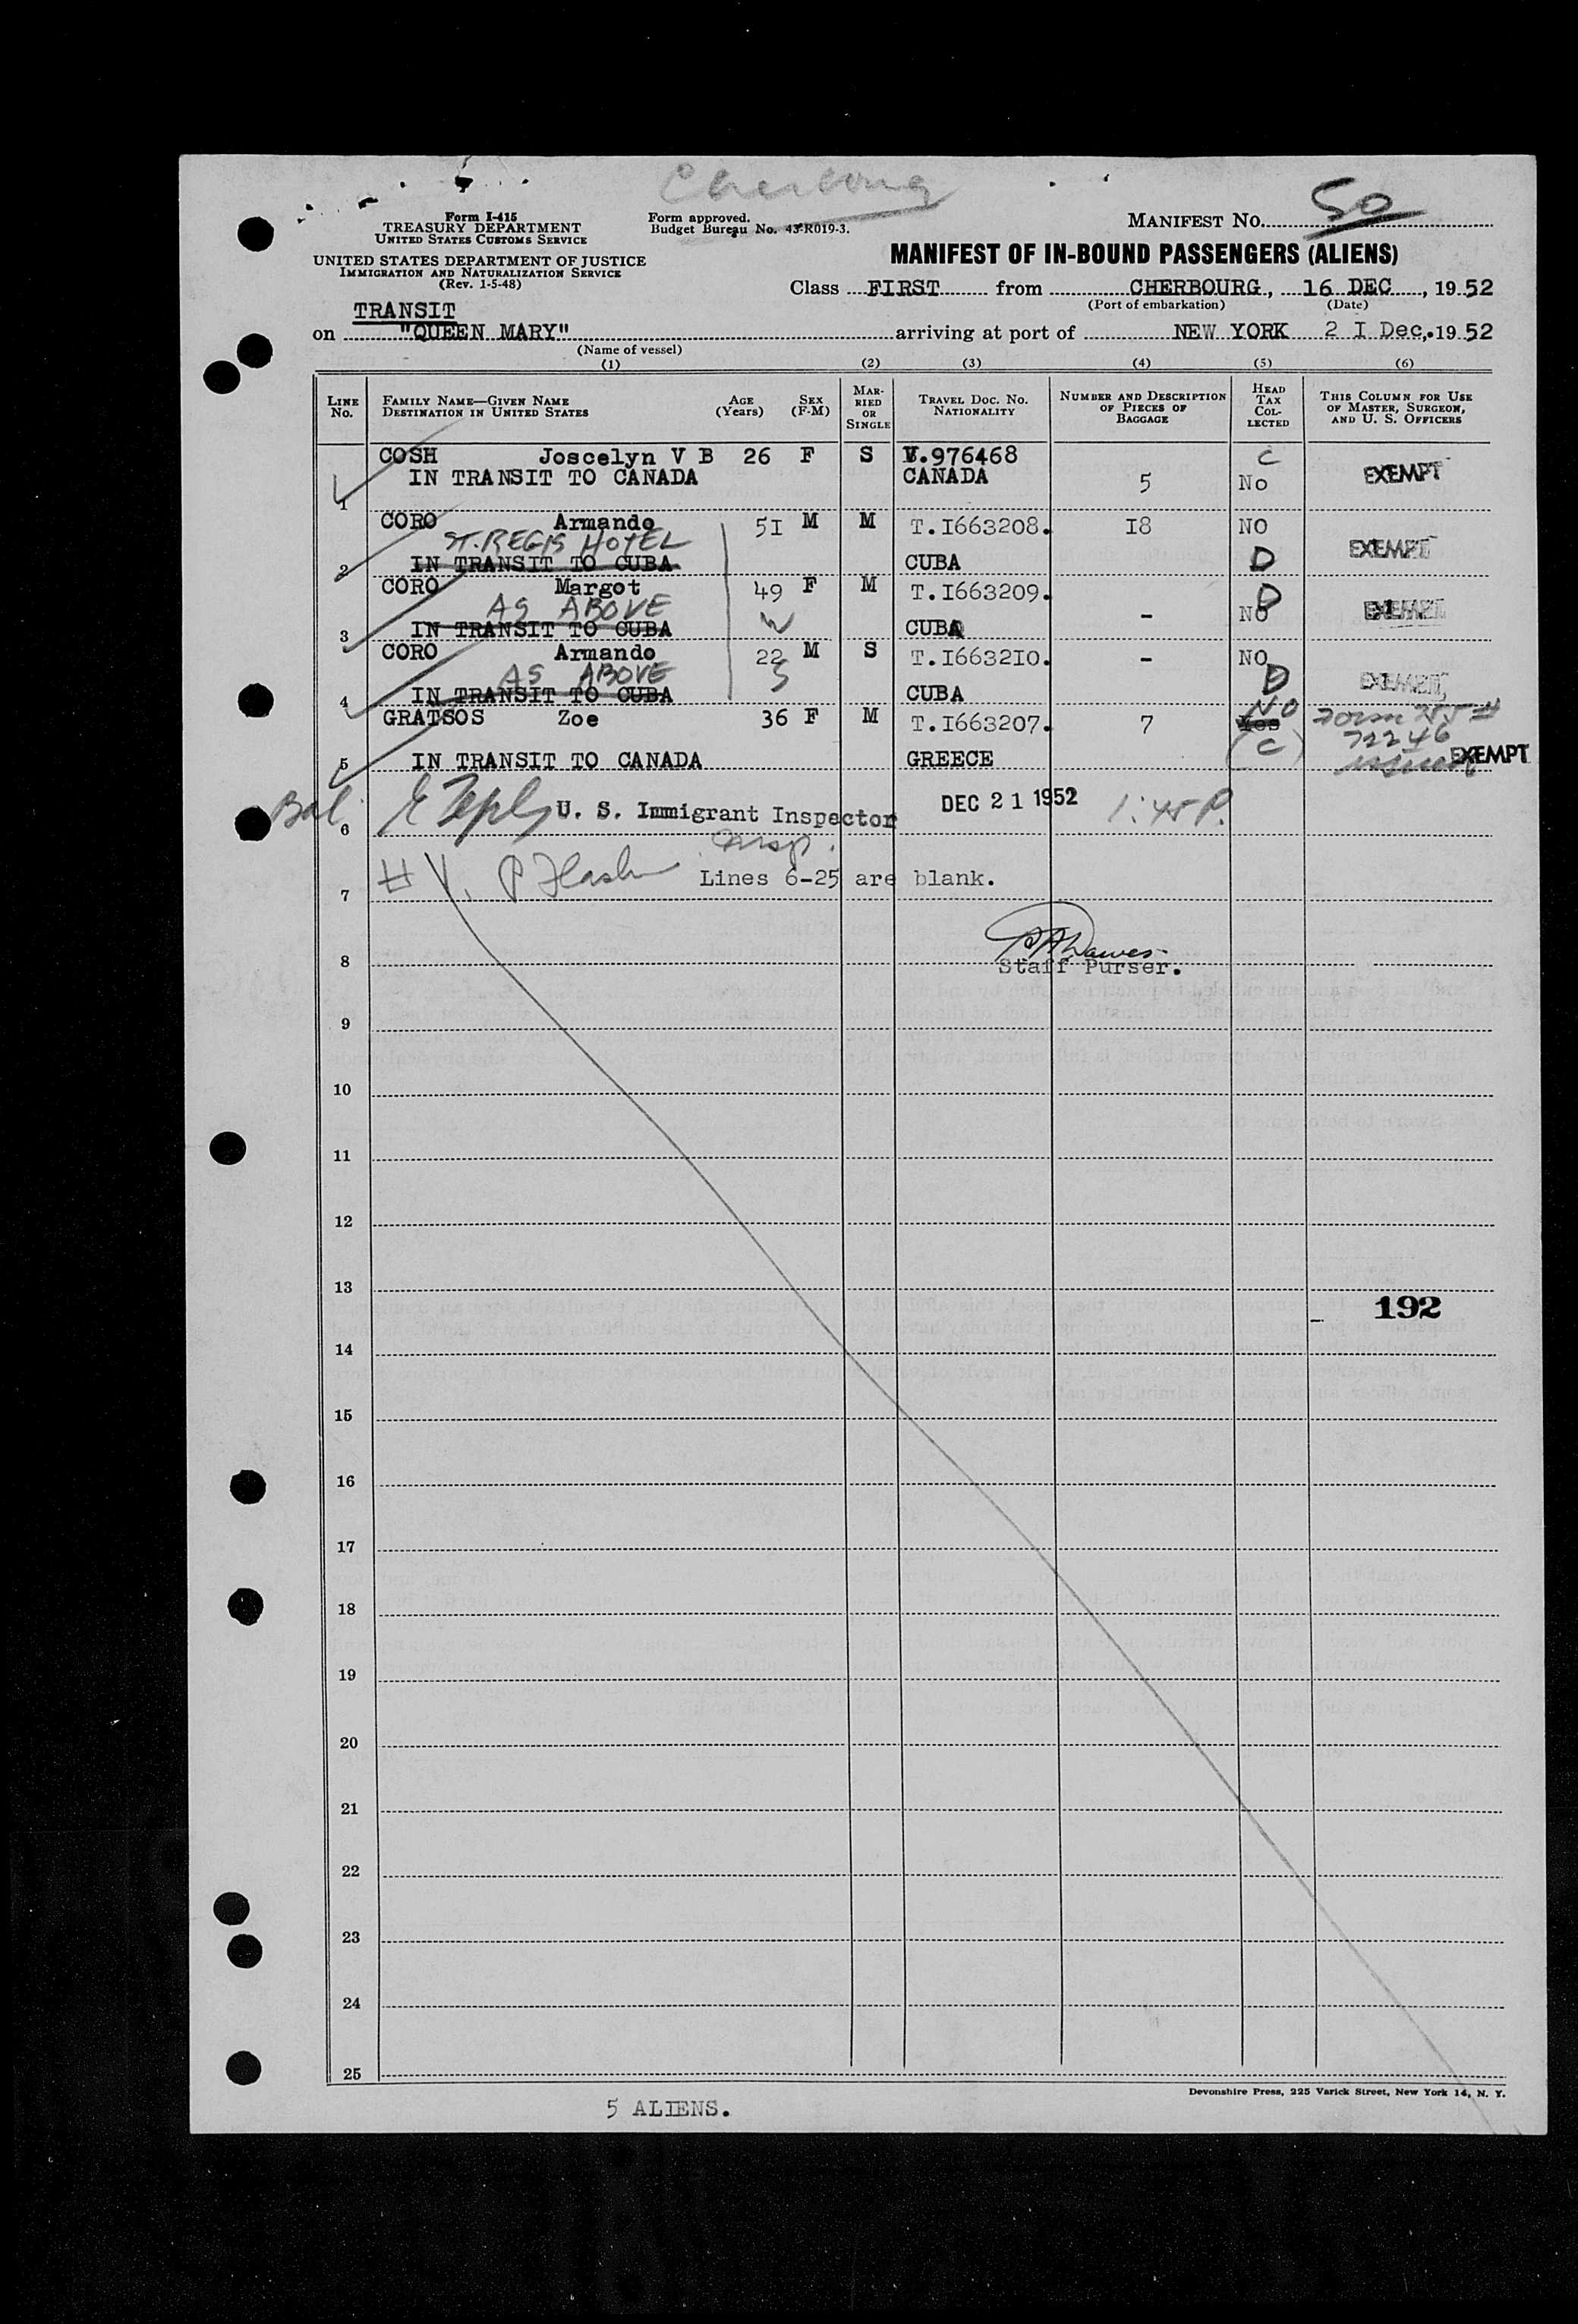 Cherbourg
Form I-415
TREASURY DEPARTMENT
UNITED STATES CUSTOMS SERVICE
UNITED STATES DEPARTMENT OF JUSTICE
IMMIGRATION AND NATURALIZATION SERVICE
(Rev. 1-5-48)
Form approved.
Budget Bureau No. 43-R019-3.
MANIFEST NO. 50
MANIFEST OF IN-BOUND PASSENGERS (ALIENS)
Class FIRST from CHERBOURG, 16 DEC, 1952
(Port of embarkation) (Date)
TRANSIT
on "QUEEN MARY" arriving at port of NEW YORK 2I Dec, 1952
(Name of vessel)
(1) (2) (3) (4) (5) (6)
LINE No. FAMILY NAME—GIVEN NAME DESTINATION IN UNITED STATES AGE (Years) SEX (F-M) MARRIED OR SINGLE TRAVEL DOC. NO. NATIONALITY NUMBER AND DESCRIPTION OF PIECES OF BAGGAGE HEAD TAX COLLECTED THIS COLUMN FOR USE OF MASTER, SURGEON, AND U. S. OFFICERS
COSH Joscelyn V B 26 F S V.976468 C
1 IN TRANSIT TO CANADA CANADA 5 No EXEMPT
CORO Armando 5I M M T.I663208. I8 NO
ST. REGIS HOTEL
2 IN TRANSIT TO CUBA CUBA D EXEMPT
CORO Margot 49 F M T.I663209. D
AS ABOVE - No EXEMPT
3 IN TRANSIT TO CUBA CUBA
CORO Armando 22 M S T.I6632I0. - NO
AS ABOVE
4 IN TRANSIT TO CUBA CUBA D EXEMPT
GRATSOS Zoe 36 F M T.I663207. 7 Yes NO
72246
5 IN TRANSIT TO CANADA GREECE (C) EXEMPT
U. S. Immigrant Inspector DEC 21 1952 1:45 P.
6
Lines 6-25 are blank.
7
Staff Purser.
8
9
10
11
12
13
192
14
15
16
17
18
19
20
21
22
23
24
25
Devonshire Press, 225 Varick Street, New York 14, N. Y.
5 ALIENS.